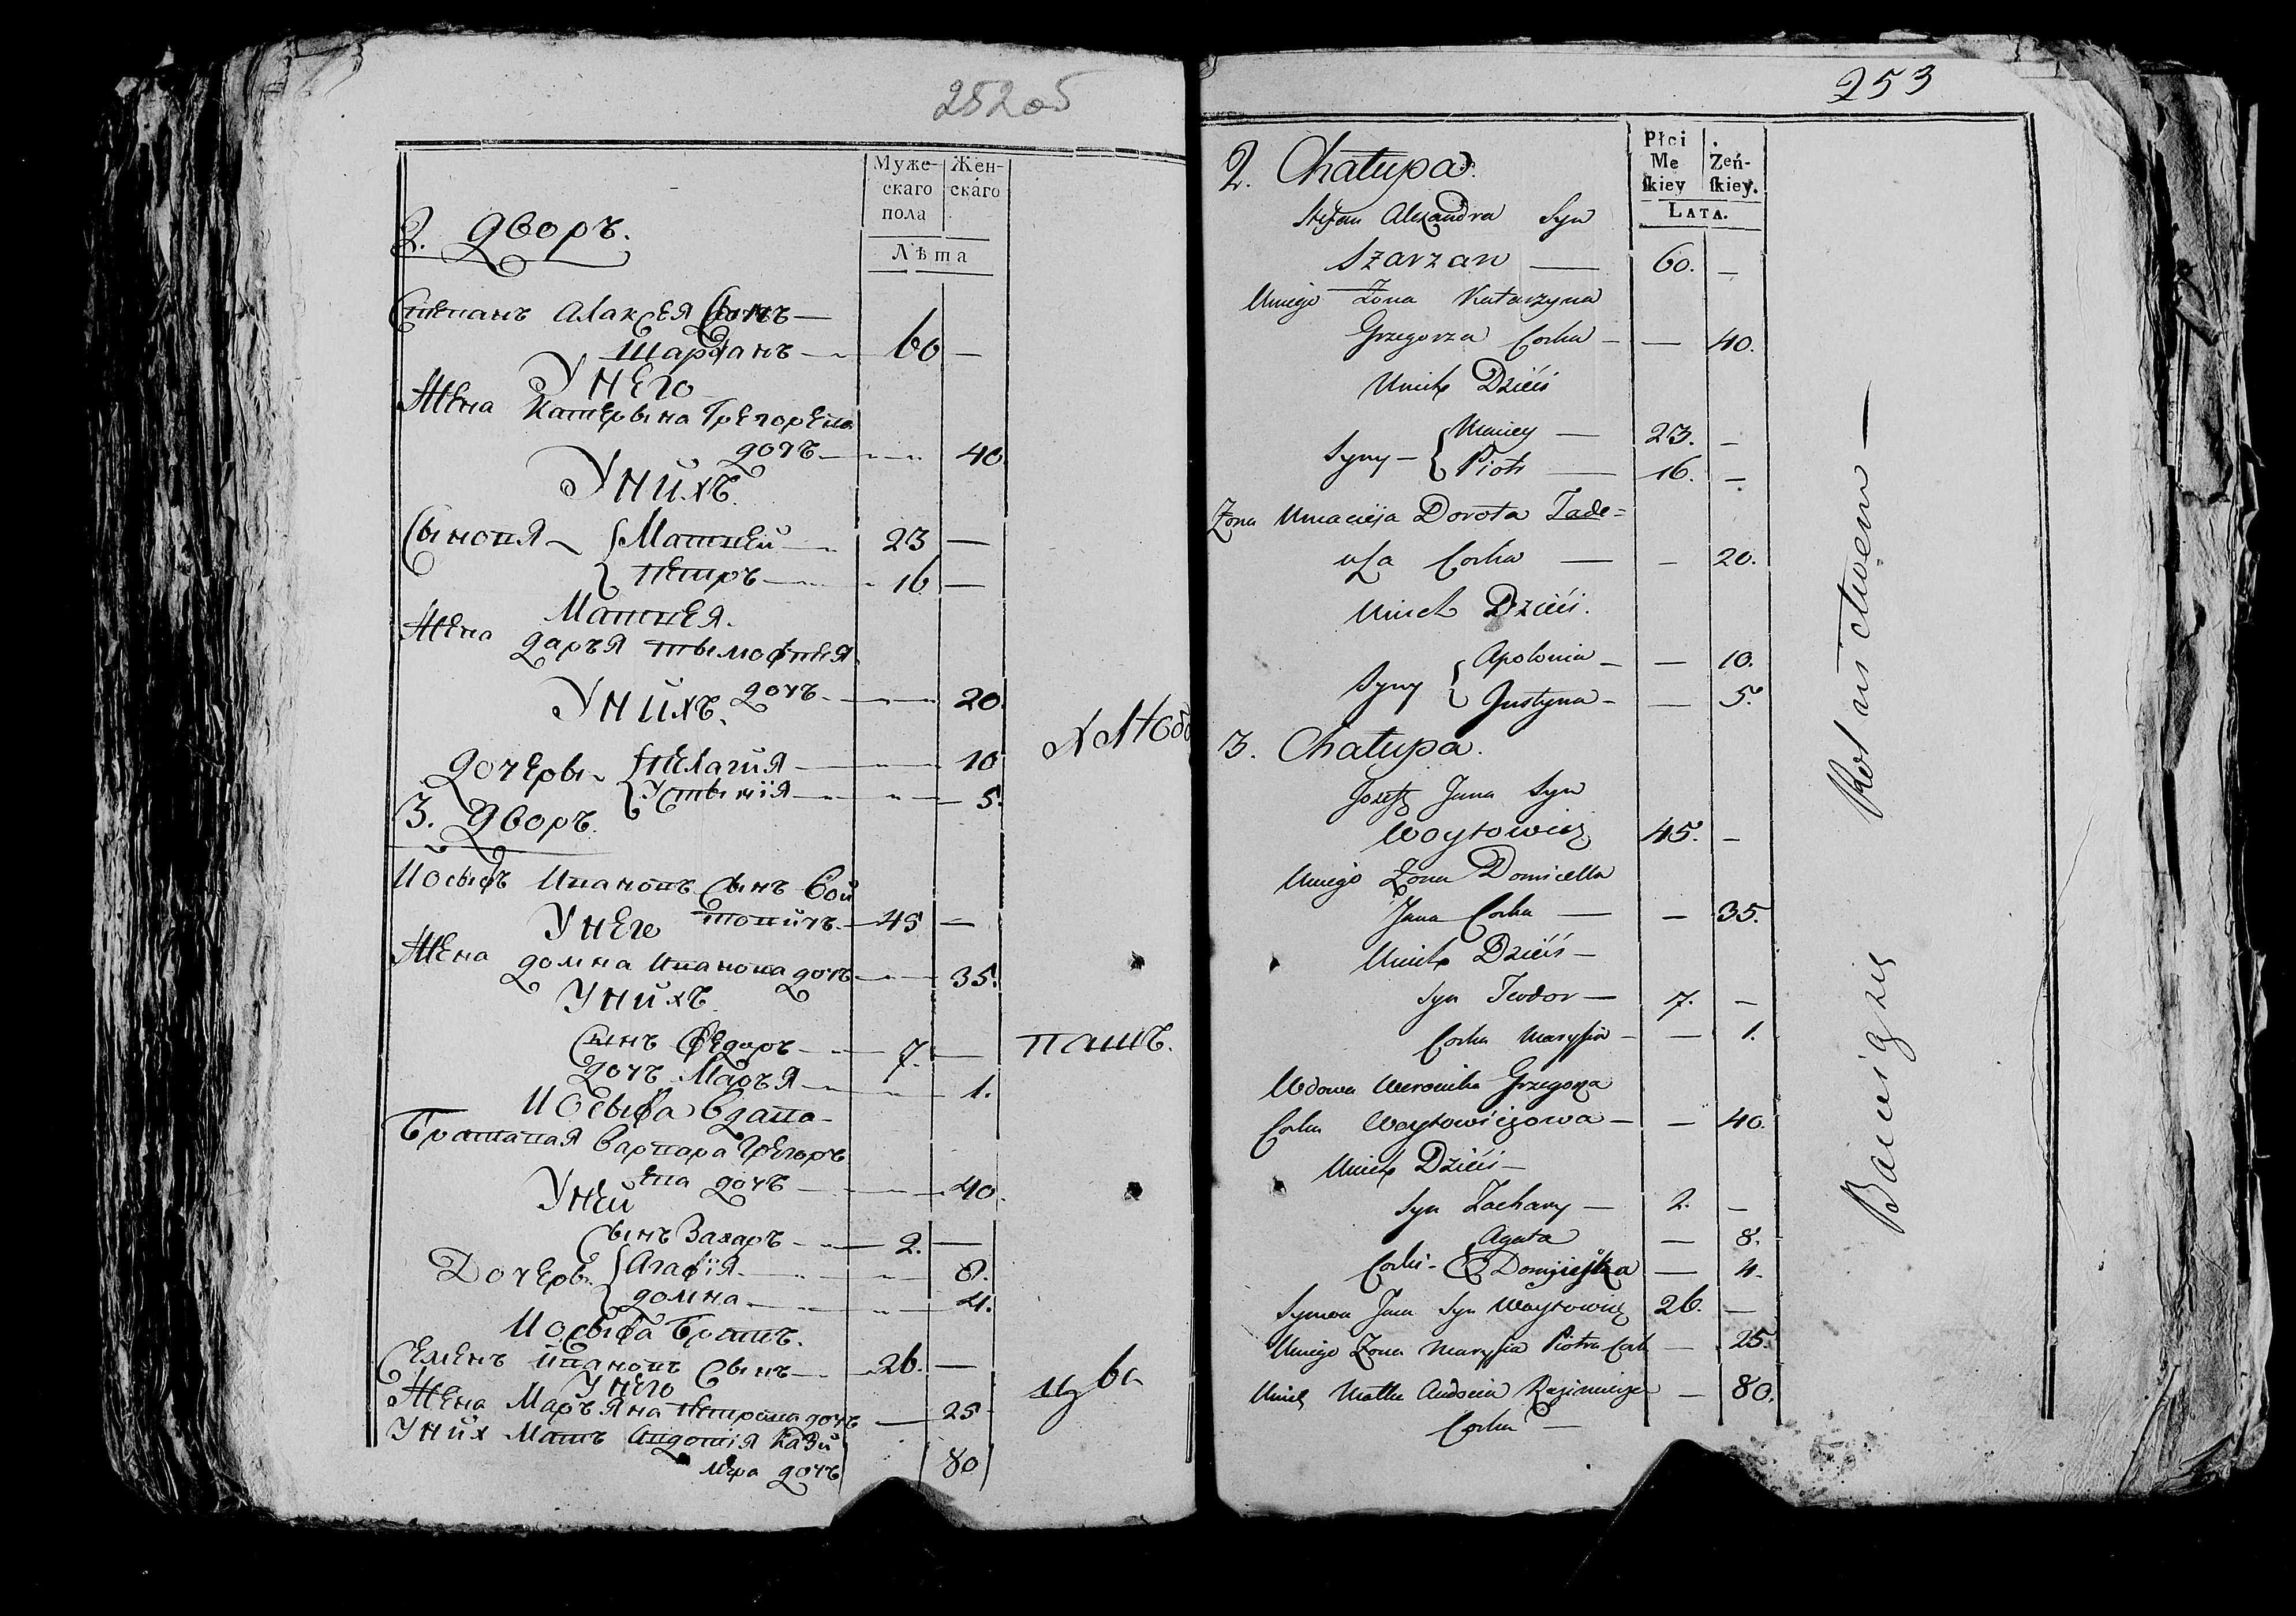 252об
Муже- Жен-
скаго скаго
пола
Лѣта
2. Дворъ.
Степанъ Алаксея Сынъ —
Шаржанъ — 60 —
У него
Жена Катерына Грегорева
дочь — 40
У нихъ.
Сыновя { Матвей — 23 —
Петръ — 16 —
Матвея.
Жена даръя тымофтея
дочь — 20
У нихъ.
Дочеры { Пелагия — 10
Устынiя — 5.
3. Дворъ.
Иосыфъ Ивановъ Сынъ Вой
товичъ — 45 —
У него
Жена домна Иванова дочь — 35.
У нихъ
Сынъ Федоръ — 7. —
дочь Маръя — 1.
Иосыфа Вдава
Братавая Варвара Грегоръ
ева дочь — 40.
У ней
Сынъ Захаръ — 2. —
Дочеры { Агафiя — 8.
домна — 4.
Иосыфа Братъ.
Семенъ Ивановъ Сынъ — 26. —
У него
Жена Маръяна Петрова дочь — 25
У них Мать Авдотiя Кази
мера дочь 80
253
Płci
Me Żeń-
skiey skiey.
LATA.
2. Chałupa.
Stefan Alexandra Syn
Szarzan — 60. —
Uniego Żona Katarzyna
Grzegorza Corka — — 40.
Unich Dzieći
Syny — { Maciey — 23. —
Piotr — 16. —
Żona Umacieja Dorota Tade=
usza Corka — — 20.
Unich Dzieći.
Syny { Apolonia — — 10.
Justyna — — 5.
3. Chałupa.
Jozef Jana Syn
Woytowicz 45. —
Uniego Żona Domicella
Jana Corka — — 35.
Unich Dzieći —
Syn Teodor — 7. —
Corka Marysia — — 1.
Wdowa Weronika Grzegorza
Corka Woytowiczowa — — 40.
Unich Dzieći —
Syn Zachary — 2. —
Corki — { Agata — 8.
— 4.
Symon Jana Syn Woytowicz 26. —
Uniego Żona Marysia Piotra Cork — 25.
Unich Matka Audocia Kazimierza — 80.
Corka —